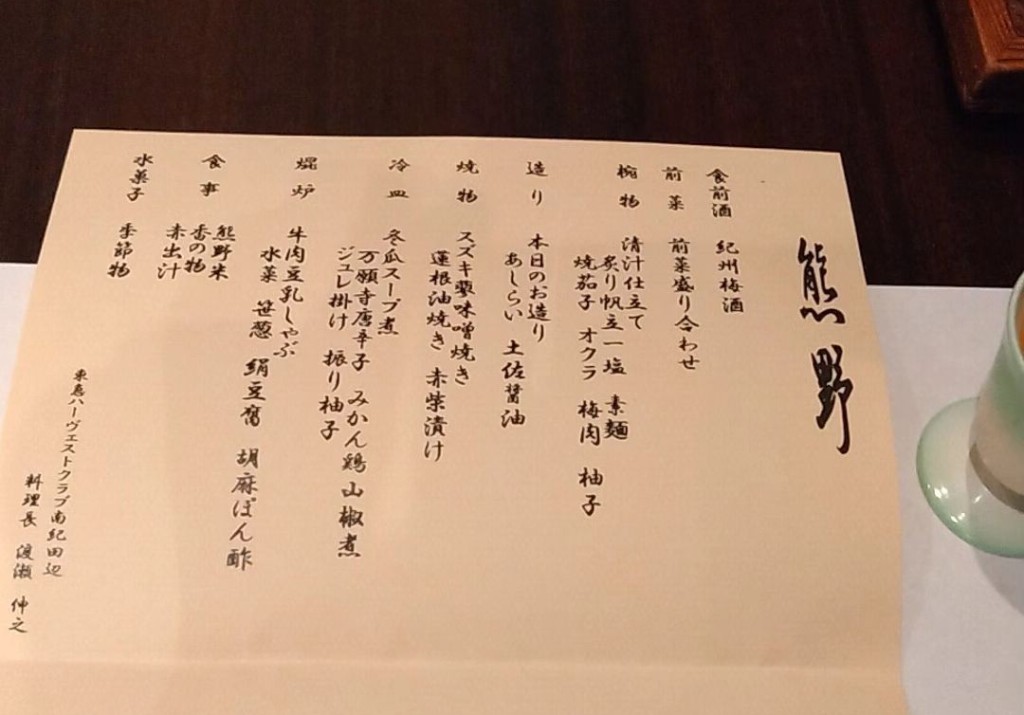 熊野
食前酒 紀州梅酒
前菜 前菜盛り合わせ
椀物 清汁仕立て
炙り帆立一塩 素麺
焼茄子 オクラ 梅肉 柚子
造り 本日のお造り
あしらい 土佐醤油
焼物 スズキ蓼味噌焼き
蓮根油焼き 赤柴漬け
冷皿 冬瓜スープ煮
万願寺唐辛子 みかん鶏山椒煮
ジュレ掛け 振り柚子
焜炉 牛肉豆乳しゃぶ
水菜 笹葱 絹豆腐 胡麻ぽん酢
食事 熊野米
香の物
赤出汁
水菓子 季節物
東急ハーヴェストクラブ南紀田辺
料理長 渡瀬 仲之